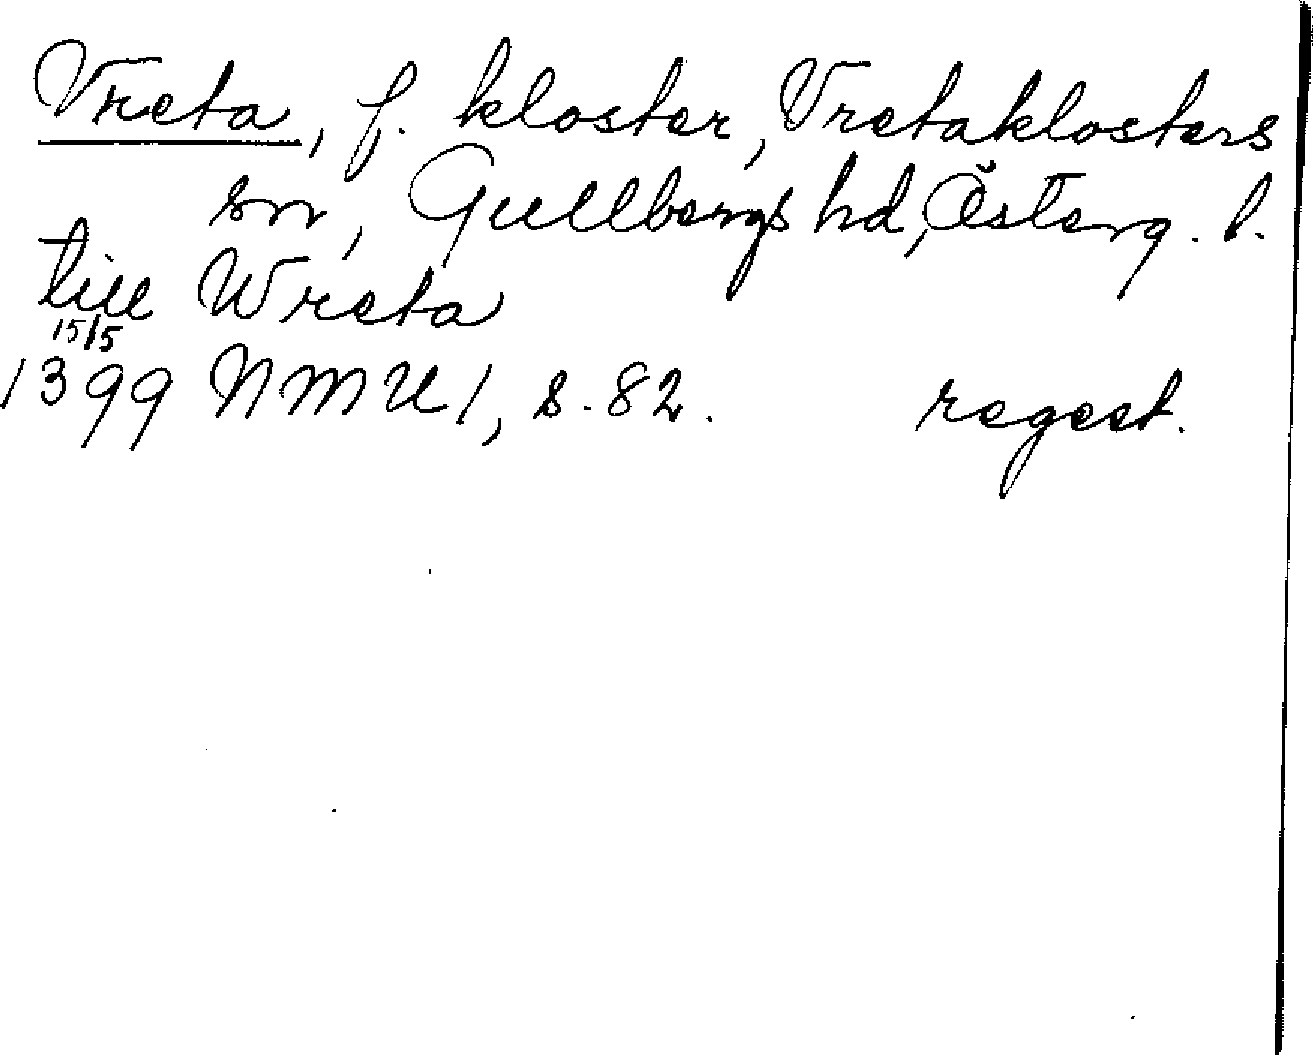 Vreta, f. kloster, Vretaklosters
sn, Gullbergs hd, Österg. l.
till Wreta
15/5
1399 NMU 1, s. 82. regest.